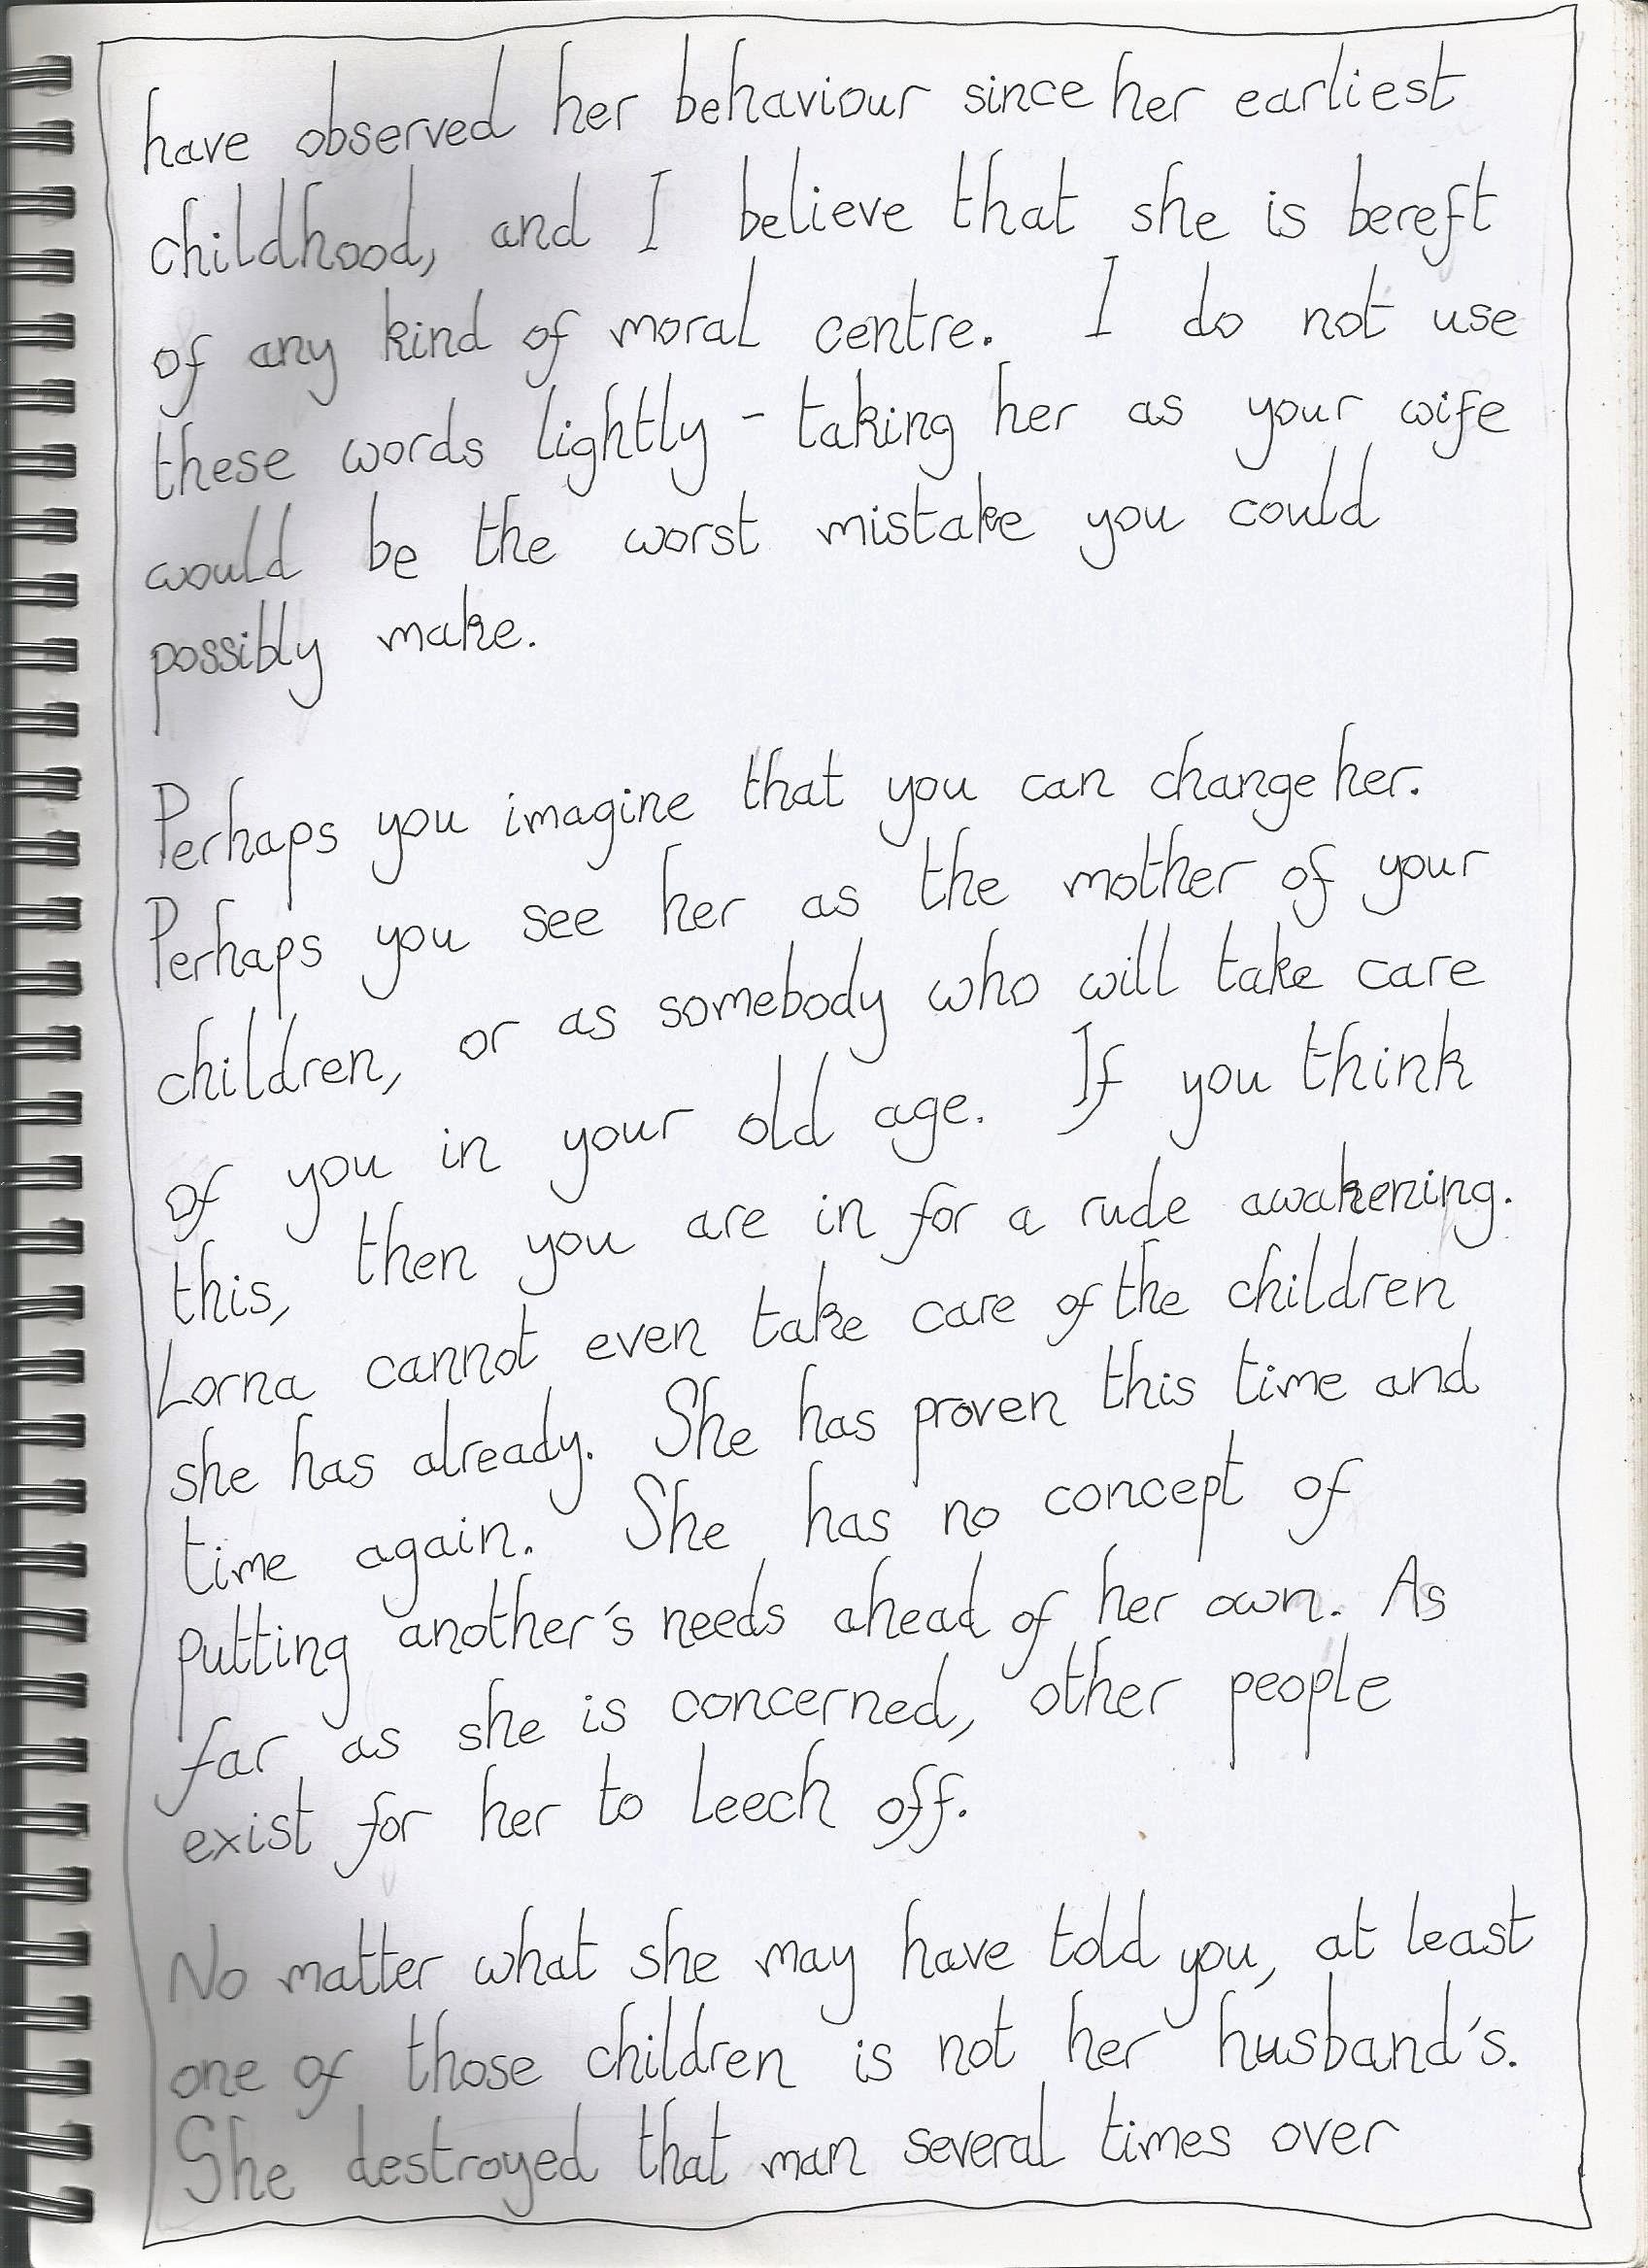 have observed her behaviour since her earliest
childhood, and I believe that she is bereft
of any kind of moral centre. I do not use
these words lightly - taking her as your wife
would be the worst mistake you could
possibly make.
Perhaps you imagine that you can change her.
Perhaps you see her as the mother of your
children, or as somebody who will take care
of you in your old age. If you think
this, then you are in for a rude awakening.
Lorna cannot even take care of the children
she has already. She has proven this time and
time again. She has no concept of
putting another's needs ahead of her own. As
far as she is concerned, other people
exist for her to leech off.
No matter what she may have told you, at least
one of those children is not her husband's.
She destroyed that man several times over